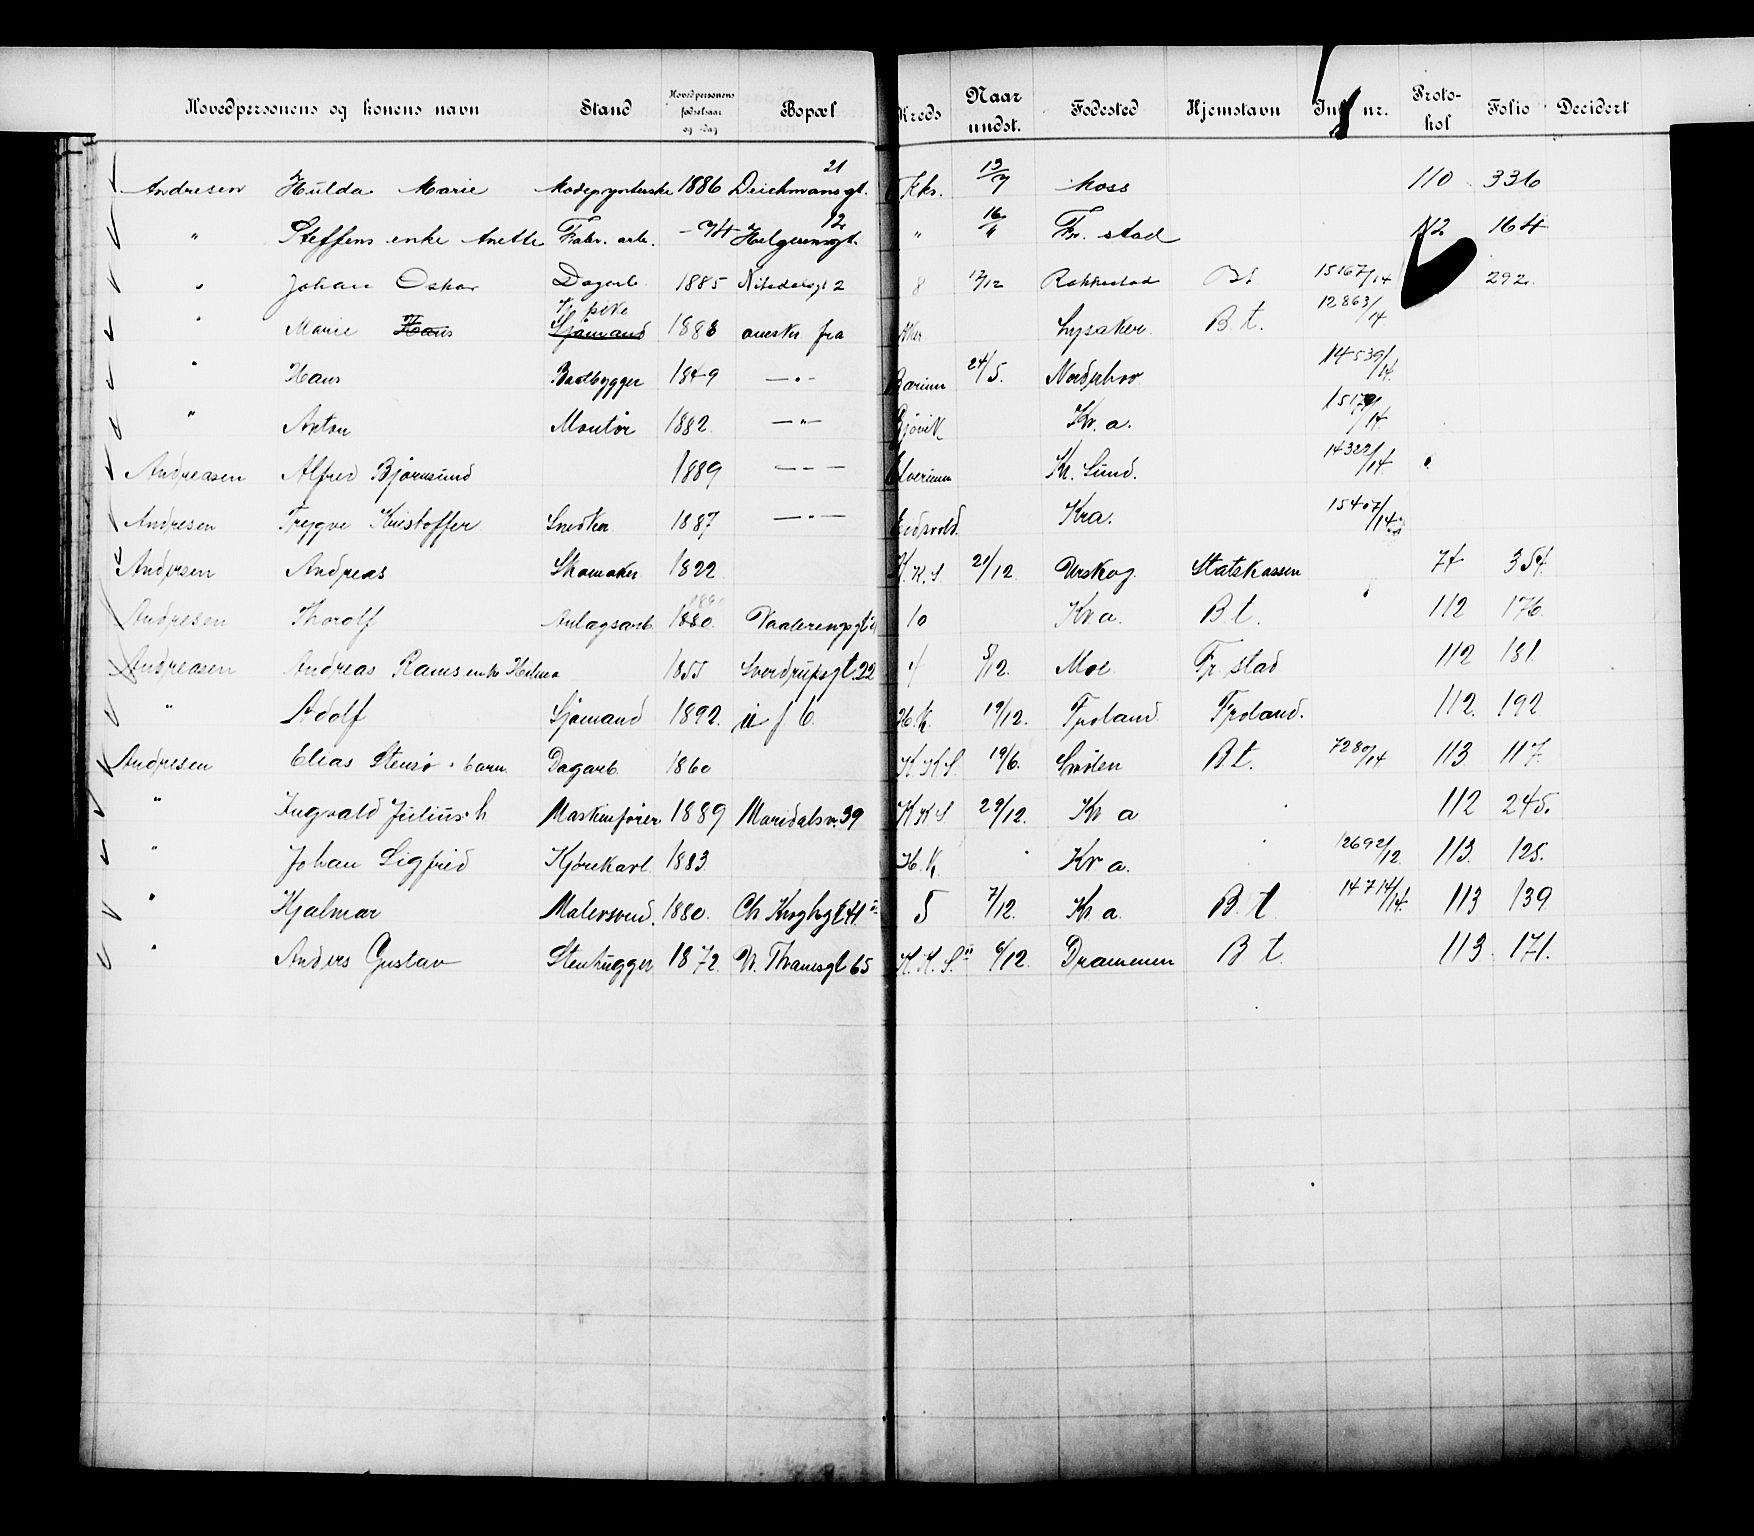 Hovedpersonens og konens navn Stand Hovedpersonens fødselsaar og -dag Bopæl Kreds Naar undst. Fødested Hjemstavn nr. Proto-kol Folio Decidert
Andresen Hulda Marie Modepynterske 1886 Deichmansgt. 21 Kks. 12/7 Moss 110 336
" Steffens enke Anette Fabr. arb. -74 Helgesensgt. 12 " 16/ Fr. stad 112 164
" Johan Oskar Dagarb. 1885 Nitedalsgt 2 8 12/12 Rakkestad Bt 15167/14 292
" Marie Hans pike Sjømand 1888 ønsker fra Aker Lysaker B. t. 12863/14
" Hans Baatbygger 1849 — " — Bærum 24/5. Norderhov 14539/14
" Anton Montør 1882. — " — Gjøvik Kr. a. /14
Andreasen Alfred Bjørnsund 1889 — " — Elverum Kr. Sund. 14322/14
Andresen Trygve Kristoffer Snedker 1887 — " — Eidsvold. Kra. 15407/14
Andersen Andreas Skomaker 1822 K. K. S. 21/12 Urskog Statskassen 74 354
Andresen Thorolf Anlagsarb. 1880. Vaalerengt 10 Kr a. B t. 112 176
Andreasen Andreas Rams enke Helma 1855 Sverdrupsgt. 22 4 8/12. Moe Fr. stad 112 181
" Adolf Sjømand 1892. u f b. H. K. 19/12. Froland Froland. 112. 192
Andresen Elias Stensø barn Dagarb. 1860 K. K S. 19/6. Smølen B. t. 7280/14 113 117.
" Ingvald Julius h Maskinfører 1889 Maridalsv. 39 K K S 29/12. Kr a 112 245.
" Johan Sigfred Kjørekarl 1883 H. K. Kr a. 12692/12. 113. 125.
" Hjalmar Malersvend. 1880. Ch. Kroghsgt 41 5 7/12. Kr a. B. t. 14714/14. 113 139
" Anders Gustav Stenhugger 1872. W. Thranesgt 65 K. K. S. 6/12. Drammen B t. 113. 171.